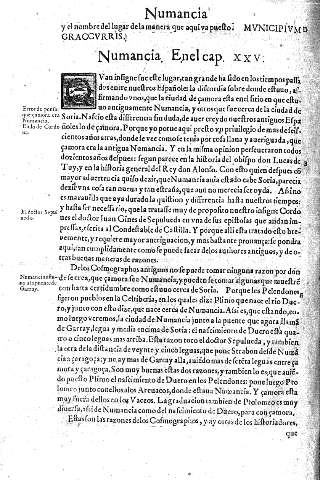 Numancia
y el nombre del lugar de la manera que aqui va puesto. MVNICIPIVM
GRACCVRRIS.
Numancia. En el cap. XXV.
TAn insigne fue este lugar, tan grande ha sido en los tiempos passados
entre nuestros Españoles la discordia sobre donde estuuo,
firmando vnos, que la ciudad de çamora esta en el sitio en que estuuo
antiguamente Numancia, y otros que fue cerca de la ciudad de
Soria. Nascio esta differencia sin duda, de auer creydo nuestros antiguos Españoles
lo de çamora. Porque yo porne aqui presto vn priuilegio de mas de seiscientos
años atras, donde se vee como se tenia por cosa llana y aueriguada, que
çamora era la antigua Numancia. Y en la misma opinion perseueraron todos
dozientos años despues: segun parece en la historia del obispo don Lucas de
Tuy, y en la historia general del Rey don Alonso. Con esto quien despues con
mayor aduertencia quiso dezir, que Numancia auia estado cabe Soria, parecia
dezir vna cosa tan nueua y tan estraña, que aun no merecia ser oyda. Assi no
es marauilla que aya durado la question y differencia hasta nuestros tiempos:
y hasta ser necessario, que la tratasse muy de proposito nuestro insigne Cordoues
el doctor Iuan Gines de Sepulueda en vna de sus epistolas que andan impressas,
escrita al Condestable de Castilla. Y porque alli esta tratado esto breuemente,
y requiere mayor aueriguacion, y mas bastante prouança: se pondra
aqui, tan cumplidamente como se puede sacar de los authores antiguos, y de otras
buenas maneras de razones.
Error de pensar
que çamora era
Numancia.
En lo de Cordoua
El doctor Sepulueda.
Numancia
a la puente de
Garray.
De los Cosmographos antiguos no se puede tomar ninguna razon por donde
se crea, que çamora sea Numancia, y puedense tomar algunas que muestren
con harta certidumbre como estuuo cerca de Soria. Porque los Pelendones
fueron pueblos en la Celtiberia, en los quales dize Plinio que nace el rio Duero,
y junto con esto dize, que nace cerca de Numancia. Assi es, que estando, como
luego veremos, la ciudad de Numancia junto a la puente que agora llaman
de Garray, legua y media encima de Soria: el nascimiento de Duero esta quatro
o cinco leguas mas arriba. Esta razon toco el doctor Sepulueda, y tambien
la otra de la distancia de veynte y cinco leguas, que pone Strabon desde Numancia
a çaragoça: y no ay mas de Garray alla, auiendo mas de setenta leguas entre çamora
y çaragoça. Son muy buenas estas dos razones, y tambien lo es que auiendo
puesto Plinio el nascimiento de Duero en los Pelendones: pone luego
junto con ellos a los Areuacos, donde estaua Numancia. Y çamora esta
muy fuera dellos en los Vaceos. La graduacion tambien de Ptolomeo es muy
diuersa, assi de Numancia como del nascimiento de Duero, para con çamora.
Estas son las razones de los Cosmographos, y ay otras de los historiadores,
que